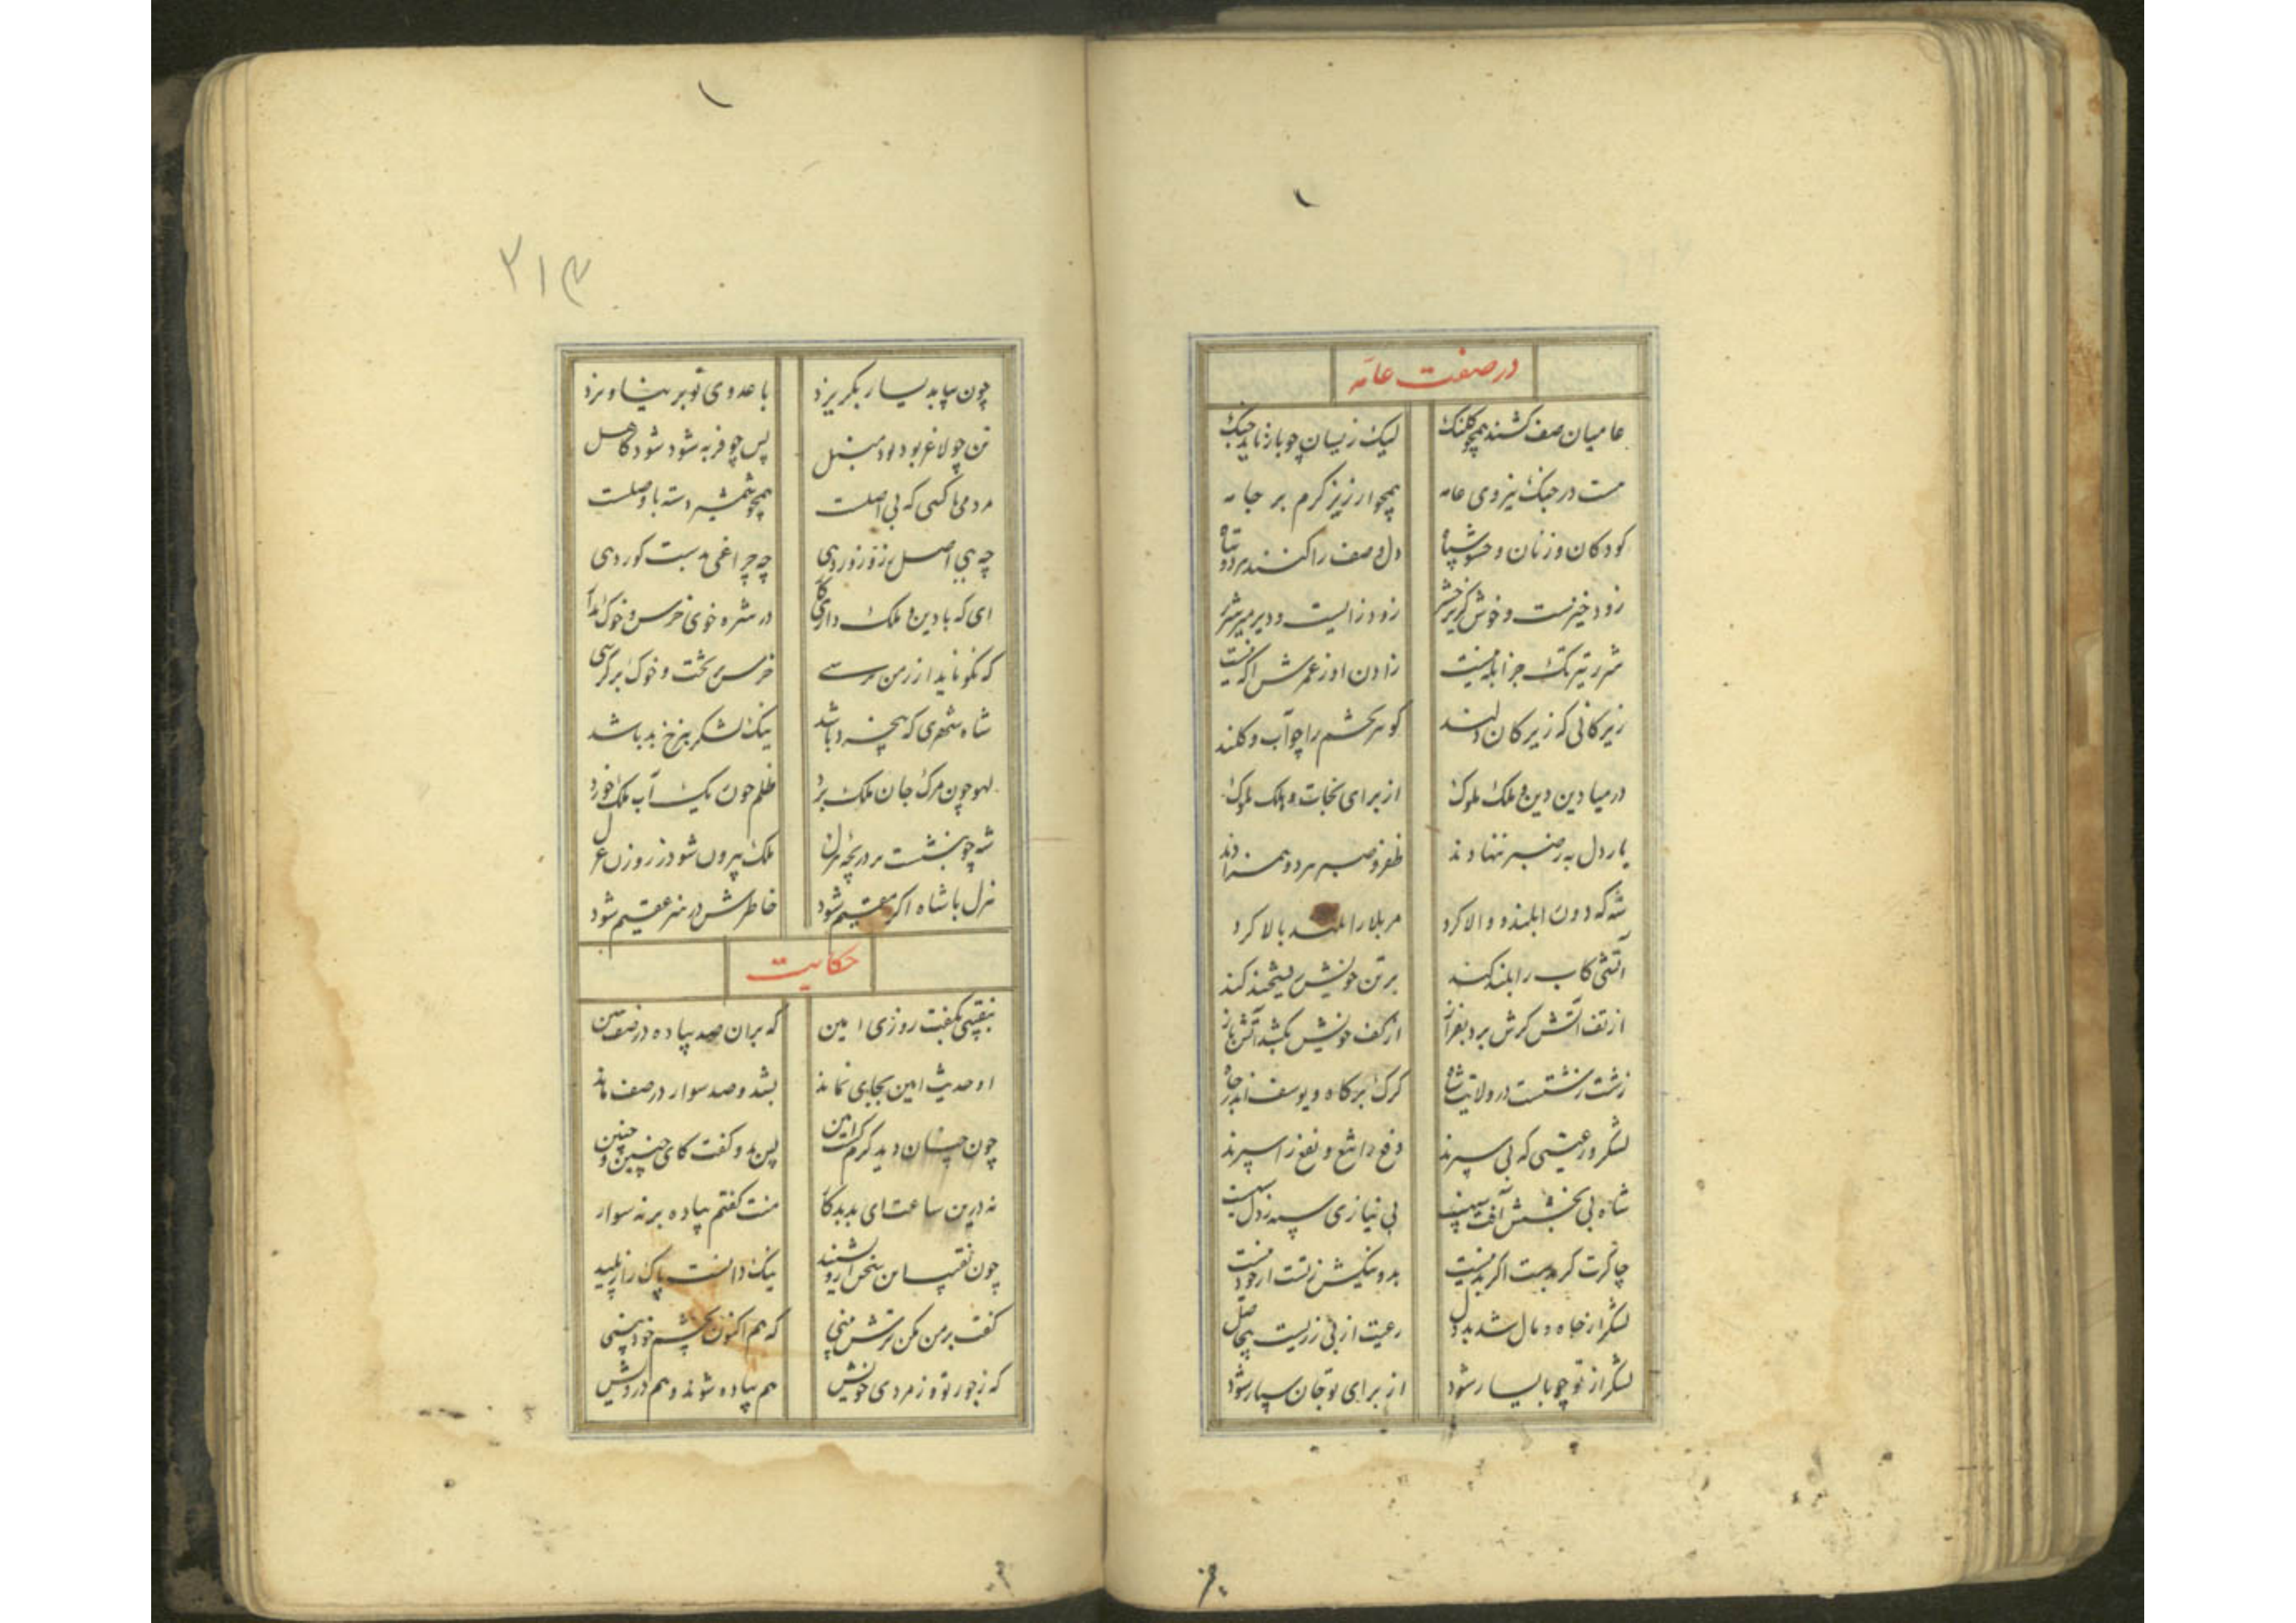 در صفت عامه
عامیان صف کشند همچو کلنک لیک زیشان چو باز ناید جنک
هست در جنک نیروی عامه همچو ارزیز کرم بر جامه
کودکان و زنان و حشو سپاه دل و صف را کنند هر دو تباه
زود خیزست و خوش کریز حشر زود زایست و دیر میر شرر
شرر تیزتک جز ابله نیست زادن او ز عمرش اکه نیست
زیرکانی که زیرکان دلند کوهر خشم را چو آب و کلند
در میادین دین و ملک ملوک از برای نجات و هلک
یار دل به ز صبر ننهادند ظفر و صبر هر دو همزادند
شه که دون را بلند و والا کرد مر بلا را بلند بالا کرد
آتشی کاب را بلند کند بر تن خویش ریشخند کند
از تف آتش کرش برد بفراز از کف خویش بکشد آتش باز
زشت زشتست در ولایت شاه کرک بر کاه و یوسف اندر چاه
لشکر و رعیتی که بی سپرند دفع را تیغ و نفع را سپرند
شاه بی بخشش آفت سپهست بی نیازی سپه ز دل سیهست
چاکرت کر بدست اکر بد نیست بد و نیکیش ز تست از خود نیست
لشکر از جاه و مال شد بد دل رعیت از بی زریست بی حاصل
لشکر از تو چو با یسار شود از برای تو جان سپار شود
۲۱۴
چون بیابد یسار بکریزد با عدوی تو بر نیاویزد
تن چو لاغر بود بود منبل پس چو فربه شود شود کاهل
مردمی با کسی که بی اصلست همچو شمشیر دسته با وصلست
چه بی اصل زر و زور دهی چه چراغی بدست کور دهی
ای که با دین و ملک داری کار در شره خوی خرس و خوک بدار
که نکو ناید ار ز من پرسی خرس بر تخت و خوک بر کرسی
شاه شهری که بیخرد باشد نیک لشکر بنرخ بد باشد
لهو چون مرک جان ملک برد ظلم چون ریک آب ملک خورد
شه چو بنشست بر دریچه هزل ملک بیرون شود ز روزن عزل
هزل با شاه اکر مقیم شود خاطرش در هنر عقیم شود
حکایت
بنقیبی بکفت روزی امین که بران صد پیاده در صف
او حدیث امین بجای نماند بشد و صد سوار در صف ماند
چون چنان دید کرم کشت امین پس بدو کفت کای چنین و چنین
نه درین ساعت ای بد بدکار منت کفتم پیاده بر نه سوار
چون نقیب این سخن ازو بشنید نیک دانست پاک را ز پلید
کفت بر من مکن ترش بینی که هم اکنون بچشم خود بینی
که ز جور تو و ز مردی خویش هم پیاده شوند و هم درویش